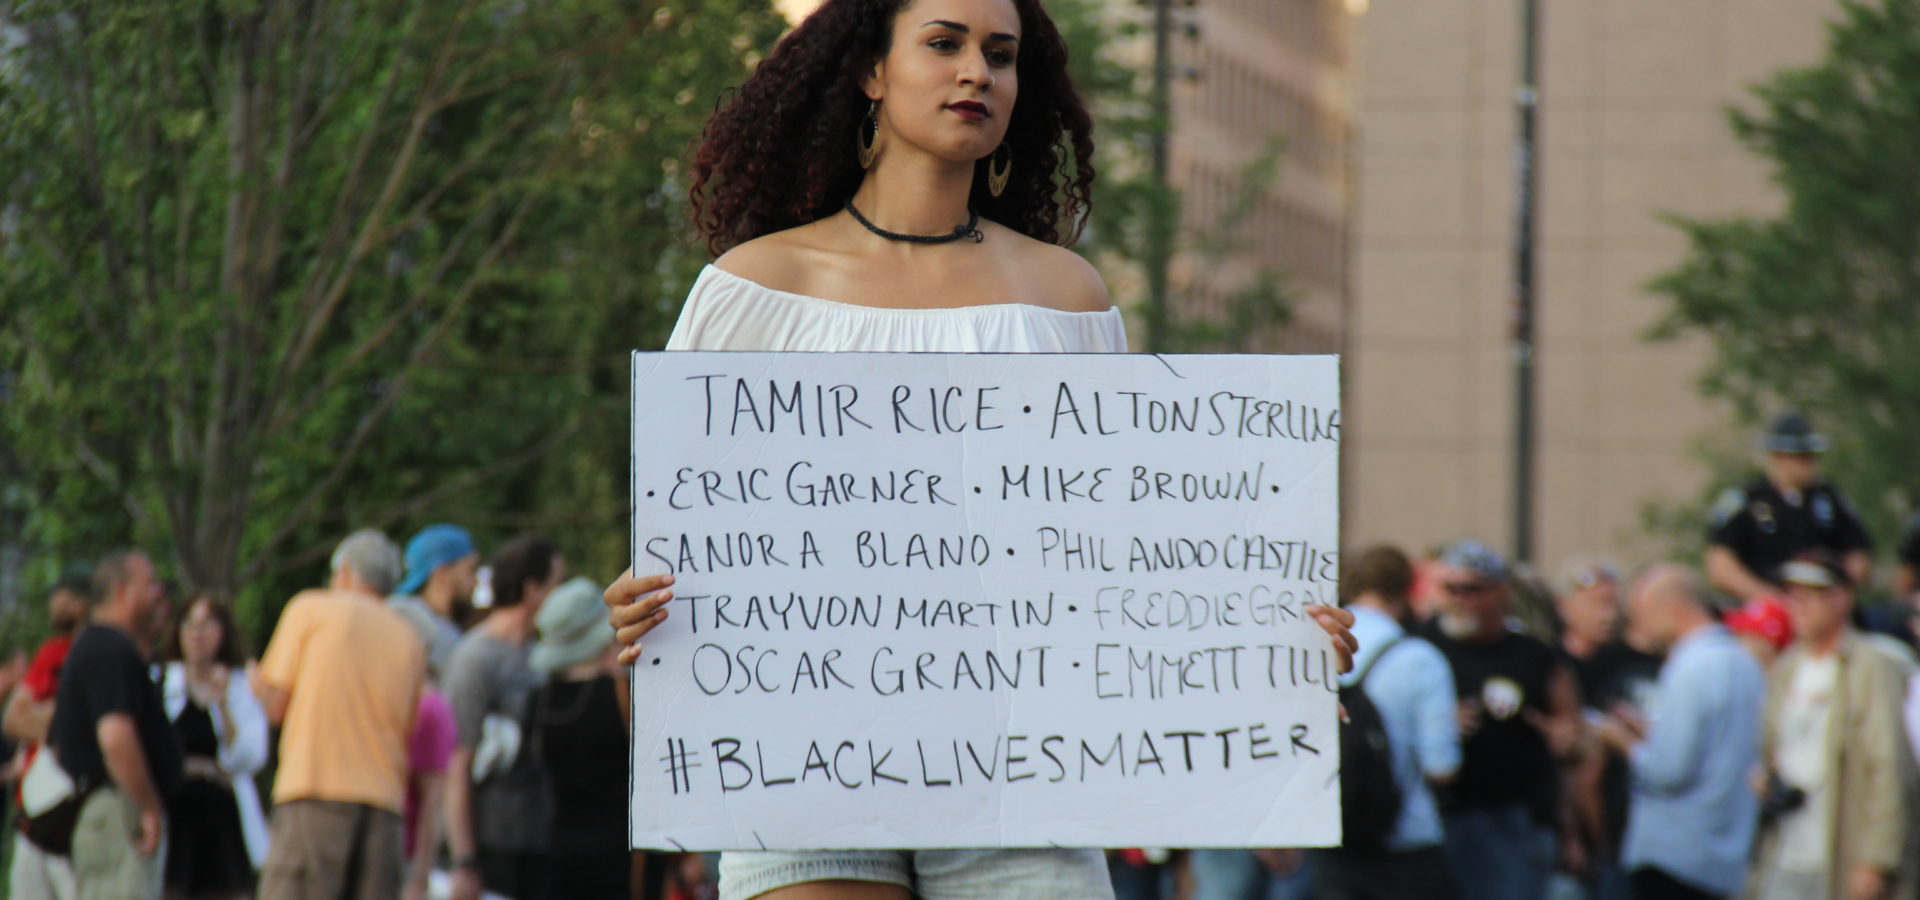 TAMIR RICE · ALTON STERLING
· ERIC GARNER · MIKE BROWN ·
SANDRA BLAND · PHILANDO CASTILE
TRAYVON MARTIN · FREDDIE GRAY
· OSCAR GRANT · EMMETT TILL
#BLACKLIVESMATTER